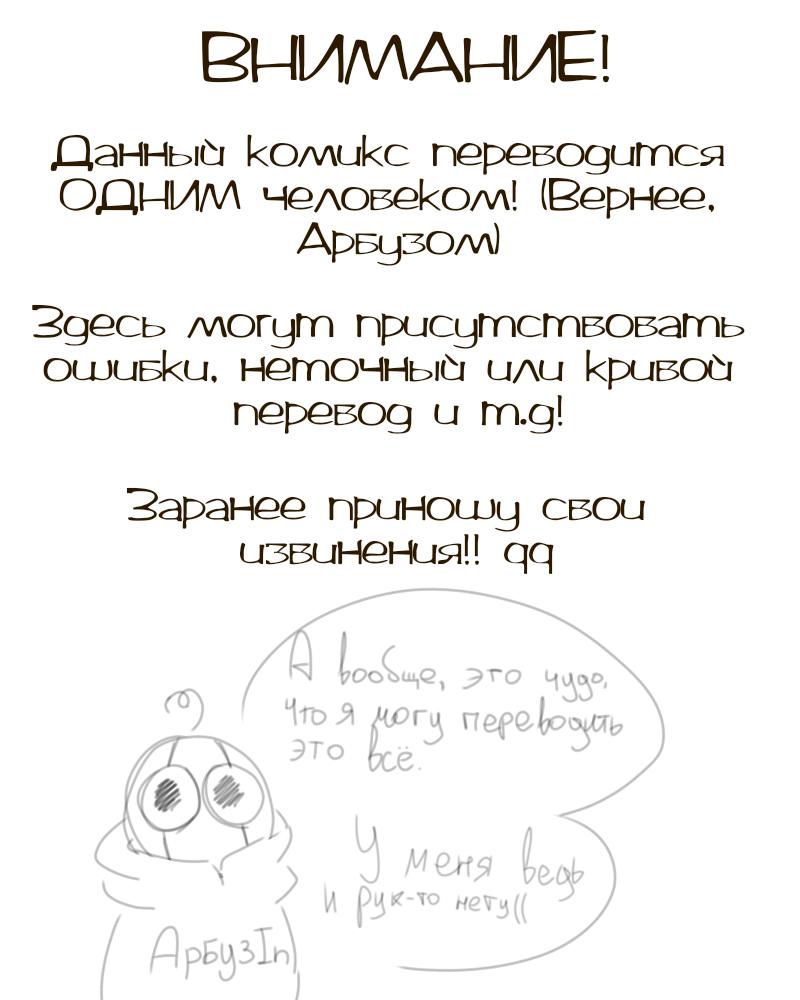 ВНИМАНИЕ!
Данный комикс переводится
ОДНИМ человеком! (Вернее,
Арбузом)
Здесь могут присутствовать
ошибки, неточный или кривой
перевод и т.д!
Заранее приношу свои
извинения!! qq
А вообще, это чудо,
что я могу переводить
это всё.
У меня ведь
и рук-то нету((
АрбузIn